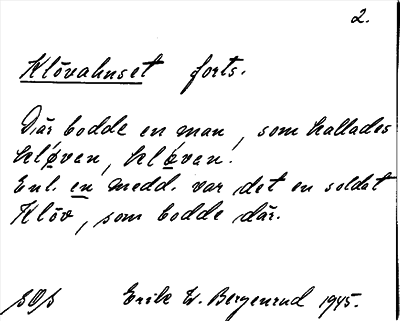 2.
Klövahuset forts.
Där bodde en man, som kallades
kløven, kløven.
Enl. en medd. var det en soldat
Klöv, som bodde där.
SOS Erik W. Bergenrud 1945.